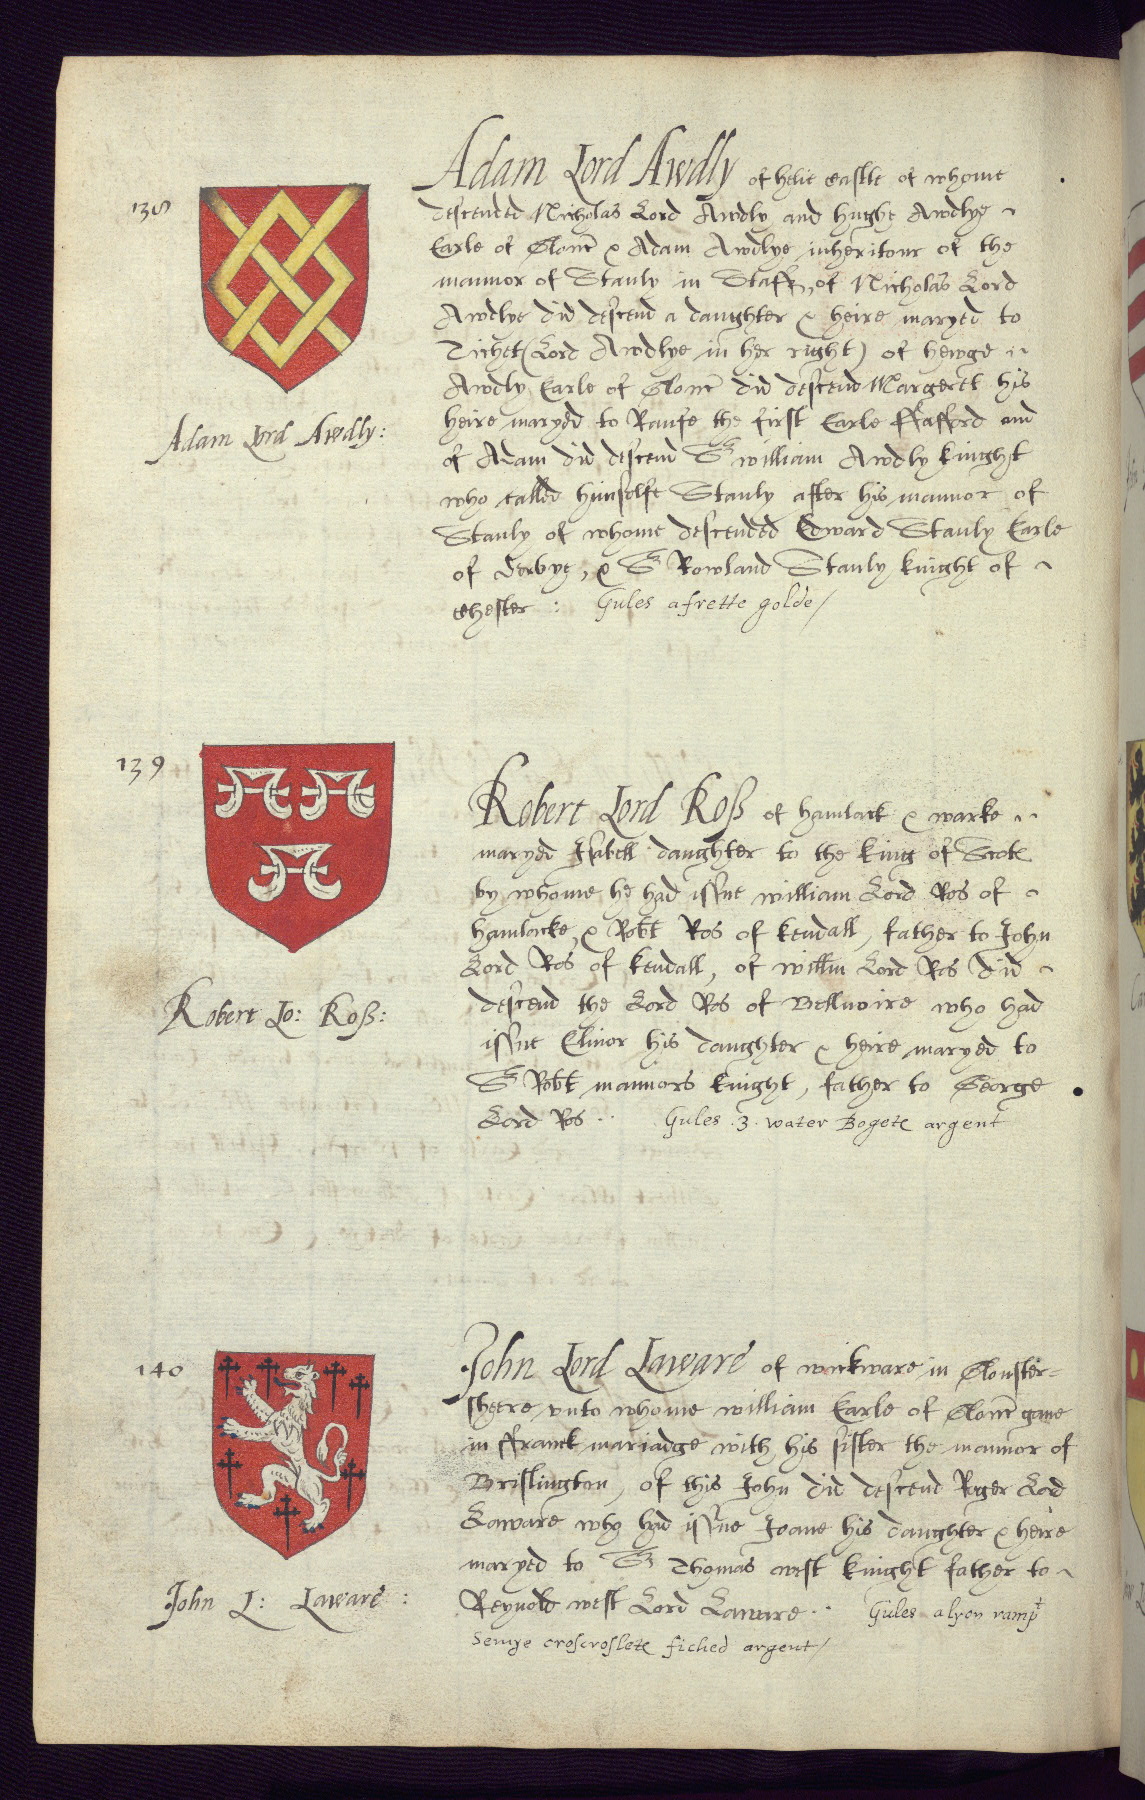 138
Adam Lord Awdly of helie castle of whome
descended Nicholas Lord Awdly and hughe Awdlye
Earle of Glouc̃ & Adam Awdlye inheritour of the
mannor of Stanly in Staff, of Nicholas Lord
Awdlye did descend a daughter & heire maryed to
Tichet (Lord Awdlye in her right) of hewge
Awdly Earle of Glouc̃ did descend Margeret his
heire maryed to Raufe the first Earle Stafford and
of Adam did descend Sr william Awdly knight
who called himselfe Stanly after his mannor of
Stanly of whome descended Edward Stanly Earle
of derbye, & Sr Rowland Stanly knight of
chester : Gules a frette golde/
Adam Lord Awdly:
139
Robert Lord Roß of hamlack & warke
maryed Issabell daughter to the king of Scotꝭ
by whome he had issue william Lord Ros of
hamlacke, & Robt Ros of kendall, father to John
Lord Ros of kendall, of willm Lord Ros did
descend the Lord Ros of Bellvoire who had
issue Elinor his daughter & heire maryed to
Sr Robt mannors knight, father to George
Lord Ros .. Gules .3. water Bogetꝭ argent
Robert Lo: Roß:
140
John Lord Laware of wickware in Glouster-
sheere, vnto whome william Earle of Glouc̃ gaue
in ffranck mariadge with his sister the mannor of
Brislington, of this John did descend Roger Lord
Laware who had issue Joane his daughter & heire
maryed to Sr Thomas west knight father to
Reynold west Lord Laware .. Gules a lyon rampt
Semye croscrosletꝭ fiched argent/
John L: Laware :